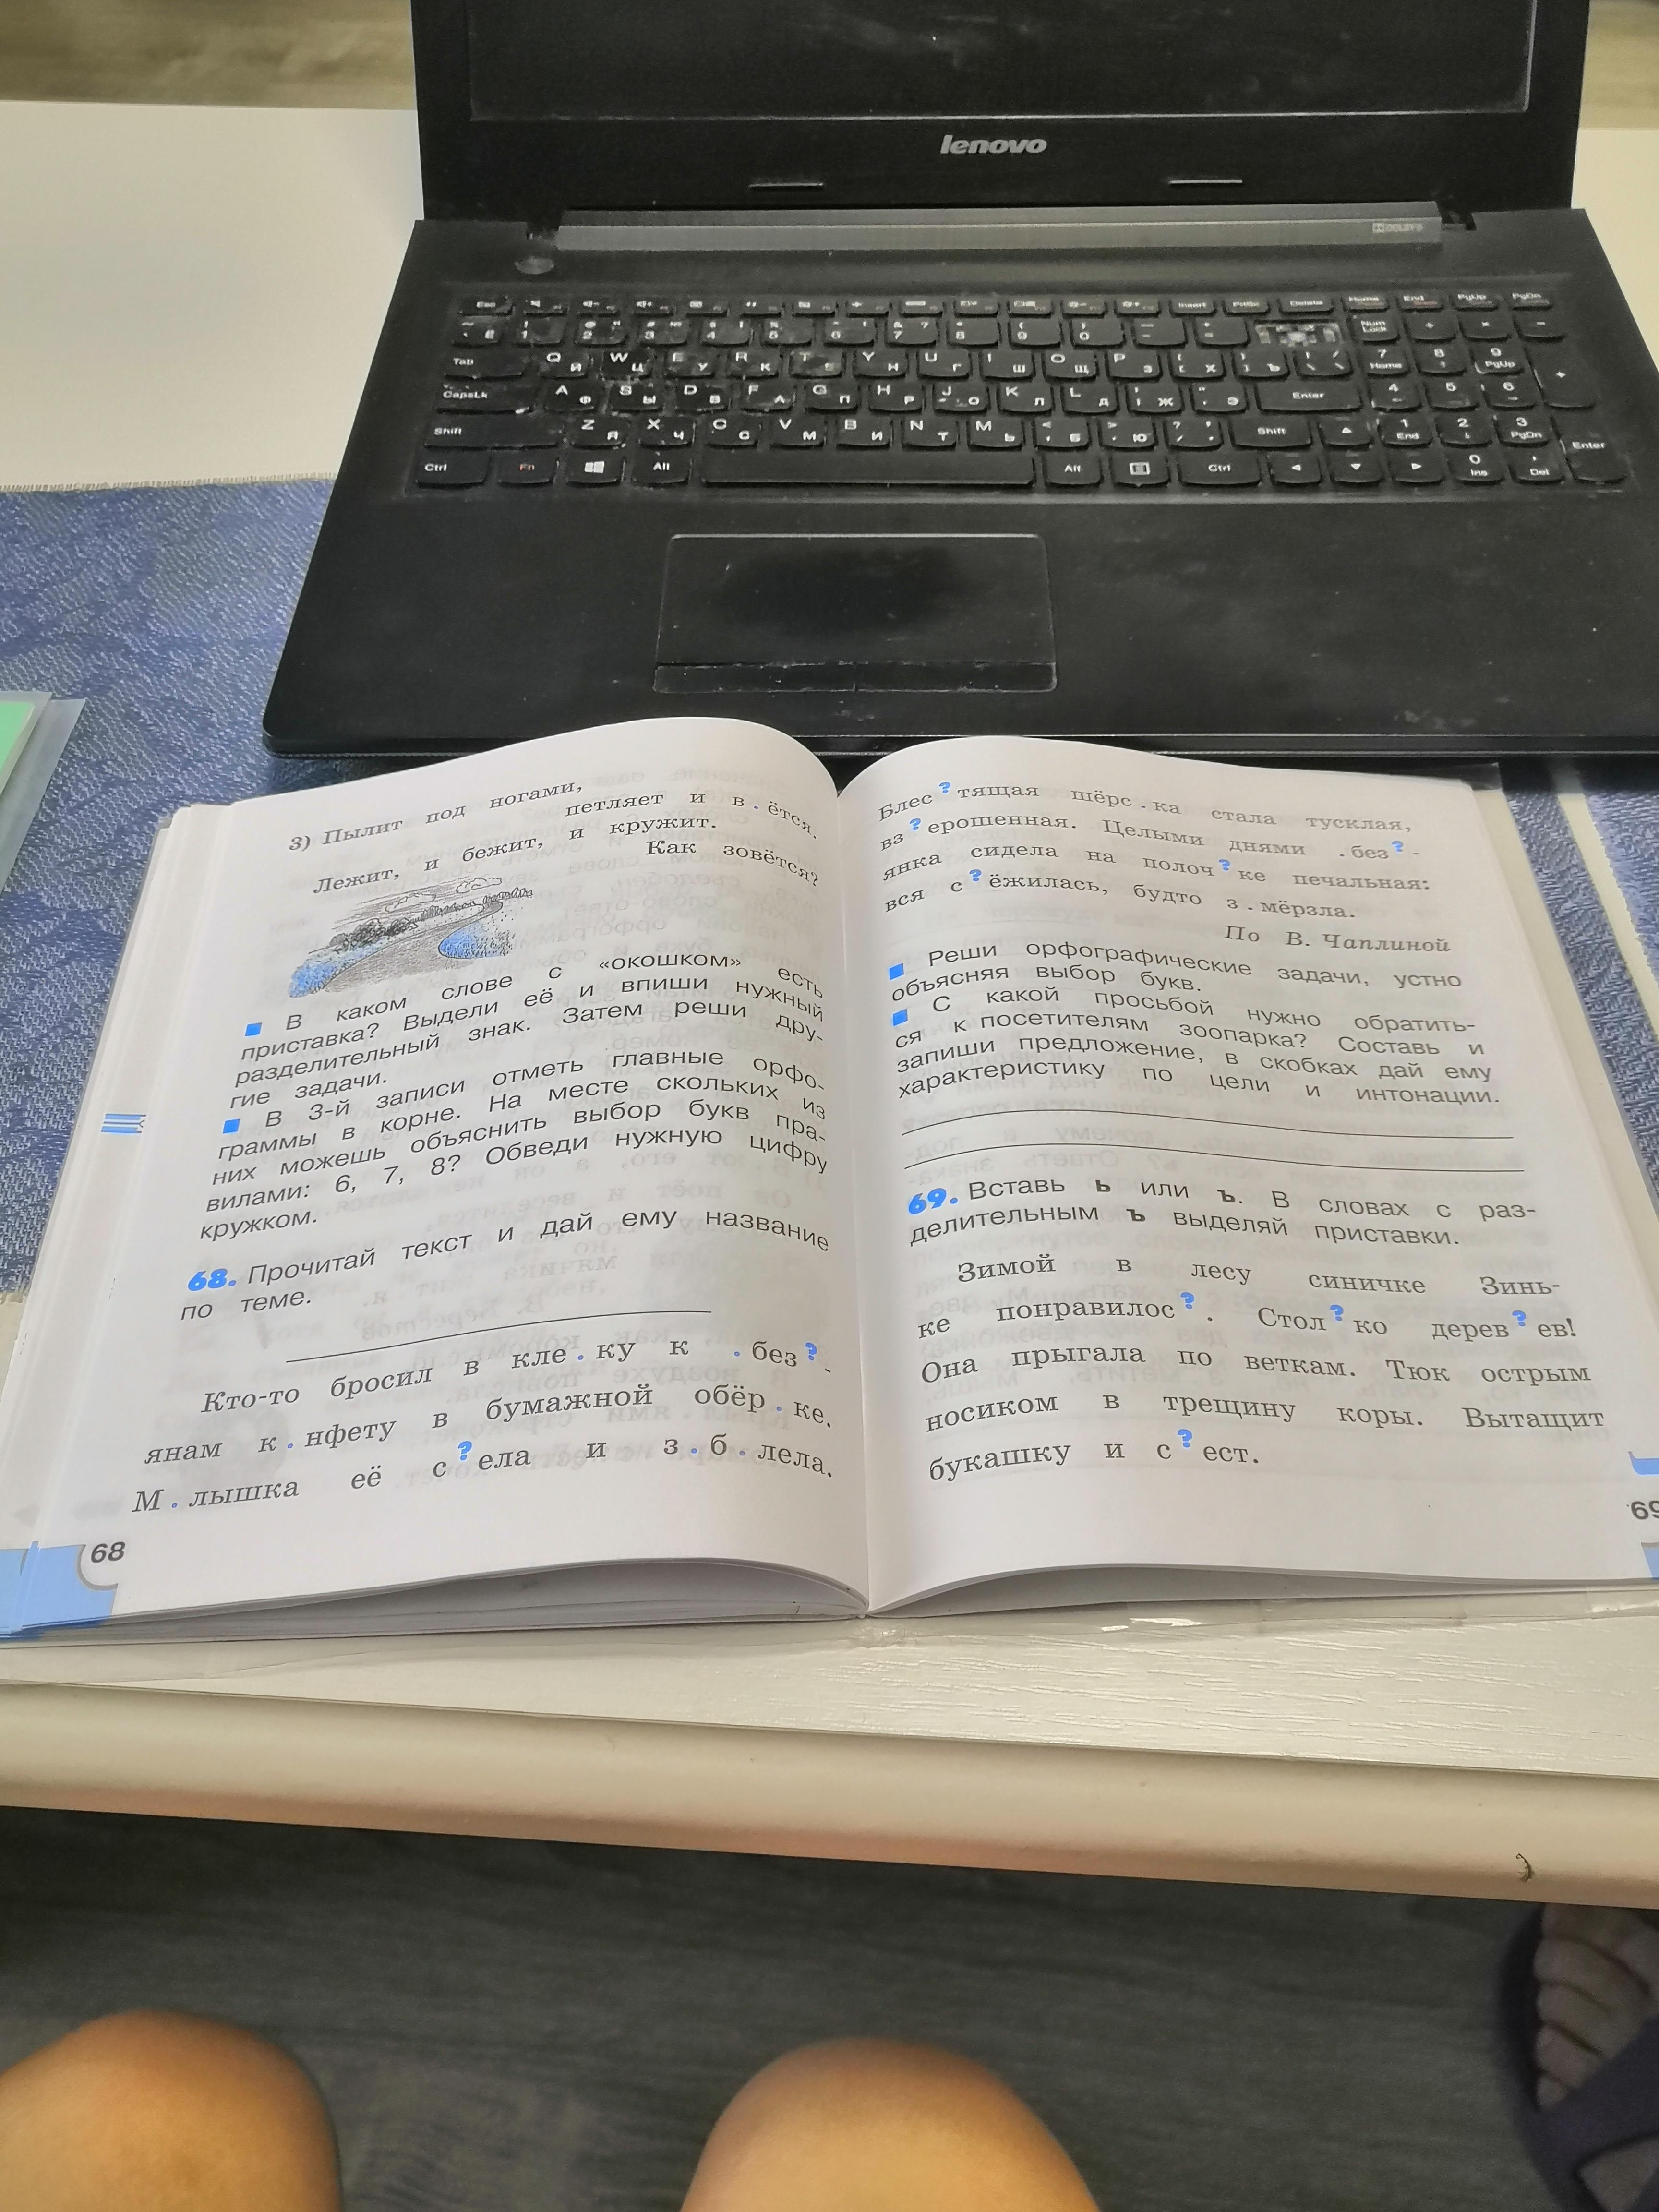 lenovo
Esc
Insert
PrtSc
Delete
Home
End
PgUp
PgDn
Tab Q Й W Ц E У R К T Y Н U Г I Ш O Щ P З { Х } Ъ
CapsLk A Ф S Ы D В F А G П H Р J О K Л L Д Ж Э Enter
Shift Z Я X Ч C С V М B И N Т M Ь Б Ю Shift
Ctrl Fn Alt Alt Ctrl
Num Lock
7 Home 8 9 PgUp
4 5 6
1 End 2 3 PgDn
0 Ins Del
Enter
3) Пылит под ногами,
петляет и в . ётся.
Лежит, и бежит, и кружит.
Как зовётся?
■ В каком слове с «окошком» есть
приставка? Выдели её и впиши нужный
разделительный знак. Затем реши дру-
гие задачи.
■ В 3-й записи отметь главные орфо-
граммы в корне. На месте скольких из
них можешь объяснить выбор букв пра-
вилами: 6, 7, 8? Обведи нужную цифру
кружком.
68. Прочитай текст и дай ему название
по теме.
Кто-то бросил в кле . ку к . без ? -
янам к . нфету в бумажной обёр . ке.
М . лышка её с ? ела и з . б . лела.
68
Блес ? тящая шёрс . ка стала тусклая,
вз ? ерошенная. Целыми днями . без ? -
янка сидела на полоч ? ке печальная:
вся с ? ёжилась, будто з . мёрзла.
По В. Чаплиной
■ Реши орфографические задачи, устно
объясняя выбор букв.
■ С какой просьбой нужно обратить-
ся к посетителям зоопарка? Составь и
запиши предложение, в скобках дай ему
характеристику по цели и интонации.
69. Вставь ь или ъ. В словах с раз-
делительным ъ выделяй приставки.
Зимой в лесу синичке Зинь-
ке понравилос ? . Стол ? ко дерев ? ев!
Она прыгала по веткам. Тюк острым
носиком в трещину коры. Вытащит
букашку и с ? ест.
69